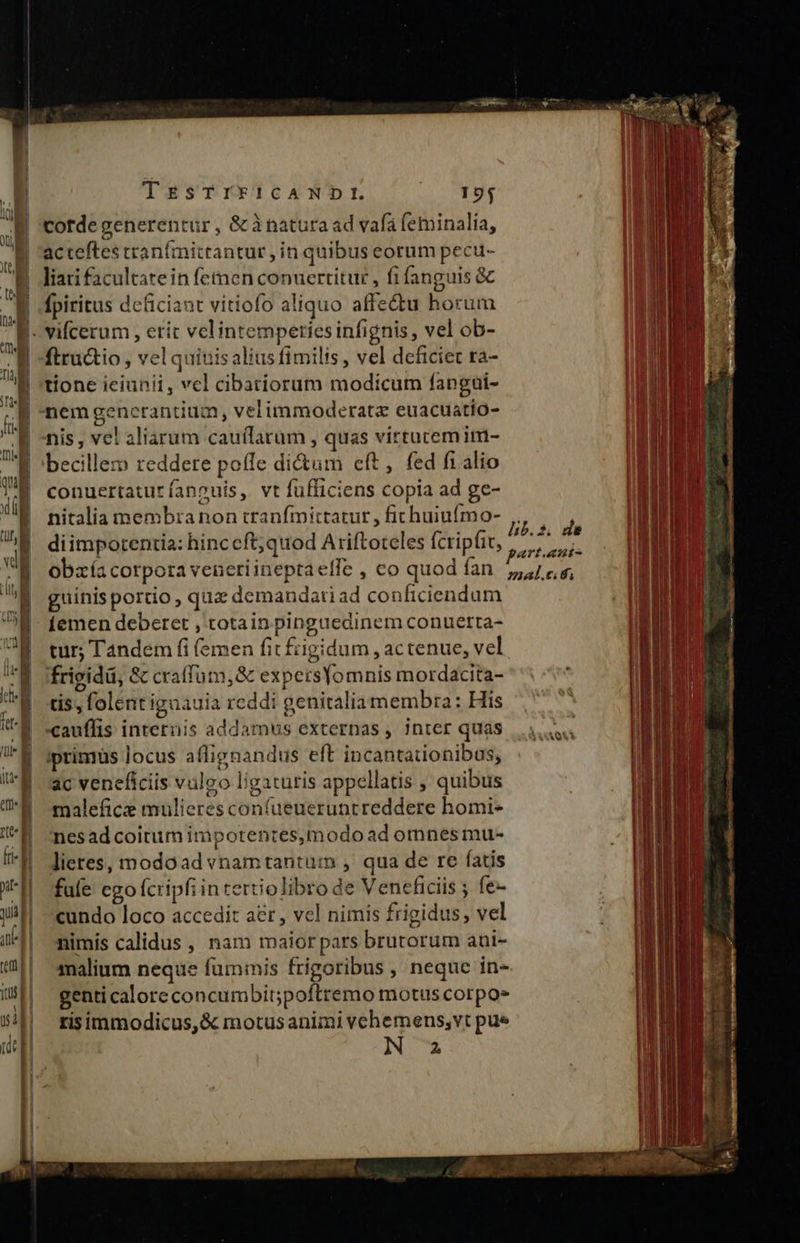 TESTIFICANDI. 195
corde generentur, & à natura ad vasa seminalia,
ac testes transmittantur, in quibus eorum pecu-
liari facultate in semen conuertitur, si sanguis &
spiritus deficiant vitioso aliquo affectu horum
viscerum, erit vel intemperies insignis, vel ob-
structio, vel quiuis alius similis, vel deficiet ra-
tione ieiunii, vel cibariorum modicum sangui-
nem generantium, vel immoderatæ euacuatio-
nis, vel aliarum caussarum, quas virtutem im-
becillem reddere posse dictum est, sed si alio
conuertatur sanguis, vt sufficiens copia ad ge-
nitalia membra non transmittatur, sit huiusmo-
di impotentia: hinc est; quod Aristoteles scripsit,
lib. 2. de
part. ani-
mal. c. 6.
obæsa corpora veneri inepta esse, eo quod san
guinis portio, quæ demandari ad conficiendum
semen deberet, tota in pinguedinem conuerta-
tur; Tandem si semen sit frigidum, ac tenue, vel
frigidū, & crassum, & expers omnis mordacita-
tis, solent ignauia reddi genitalia membra: His
caussis internis addamus externas, inter quas
primus locus assignandus est incantationibus,
ac veneficiis vulgo ligaturis appellatis, quibus
maleficæ mulieres consueuerunt reddere homi-
nes ad coitum impotentes, modo ad omnes mu-
lieres, modo ad vnam tantum, qua de re satis
fuse ego scripsi in tertio libro de Veneficiis; se-
cundo loco accedit aër, vel nimis frigidus, vel
nimis calidus, nam maior pars brutorum ani-
malium neque summis frigoribus, neque in-
genti calore concumbit; postremo motus corpo-
ris immodicus, & motus animi vehemens, vt pue
N 2